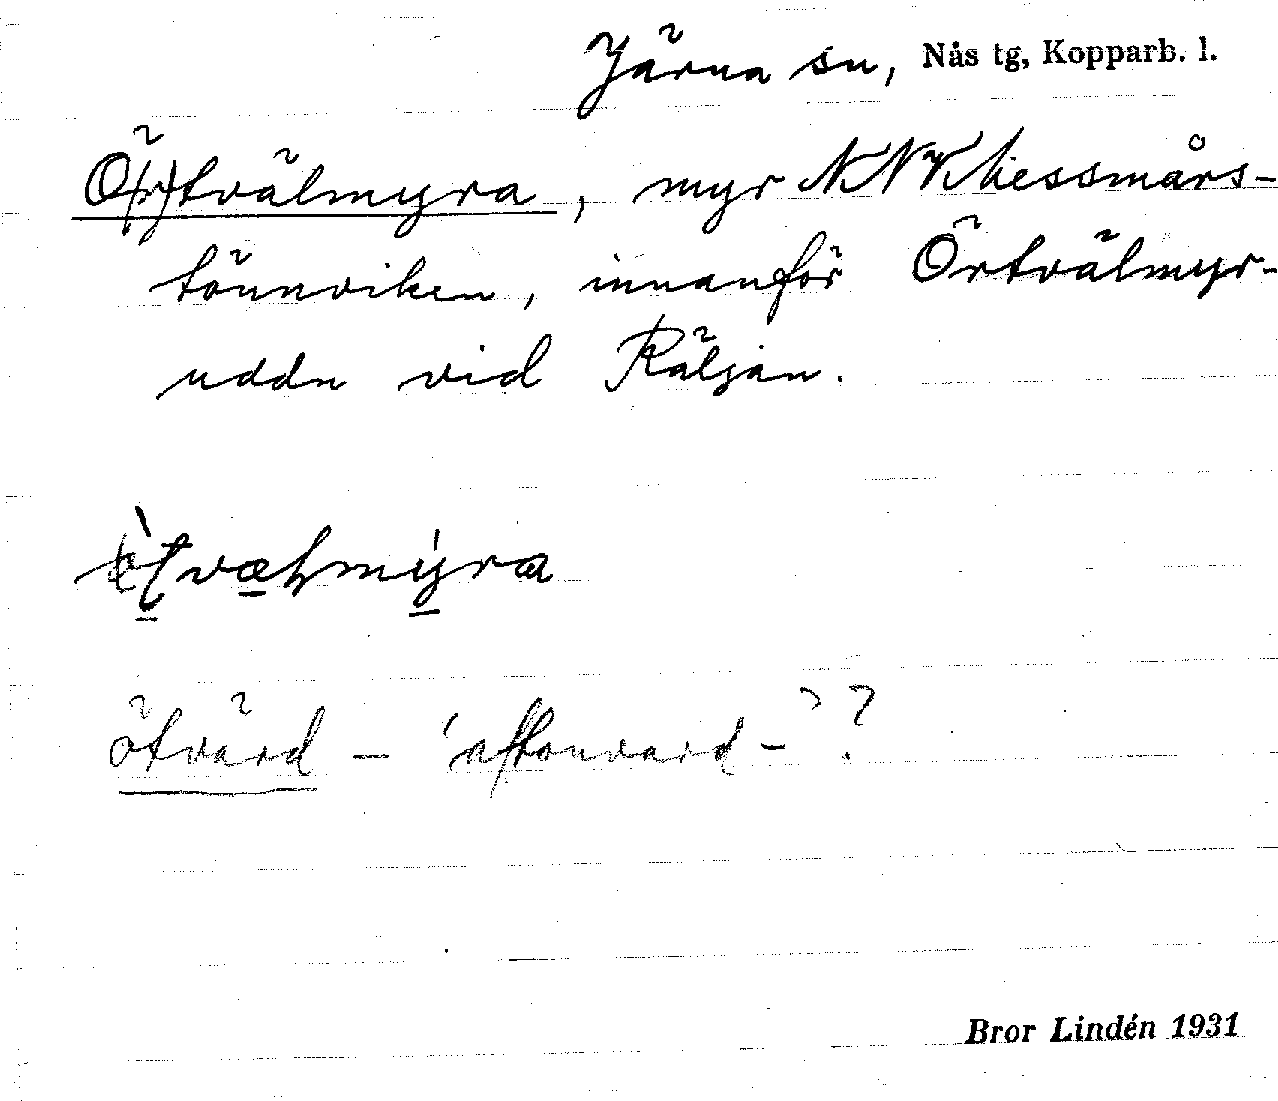 Järna sn, Nås tg, Kopparb. l.
Ö(r)tvälmyra, myr NNV Messmårs-
tönnviken, innanför Örtvälmyr-
uddn vid Räljan.
ötvärd – 'aftonvard-'?
Bror Lindén 1931